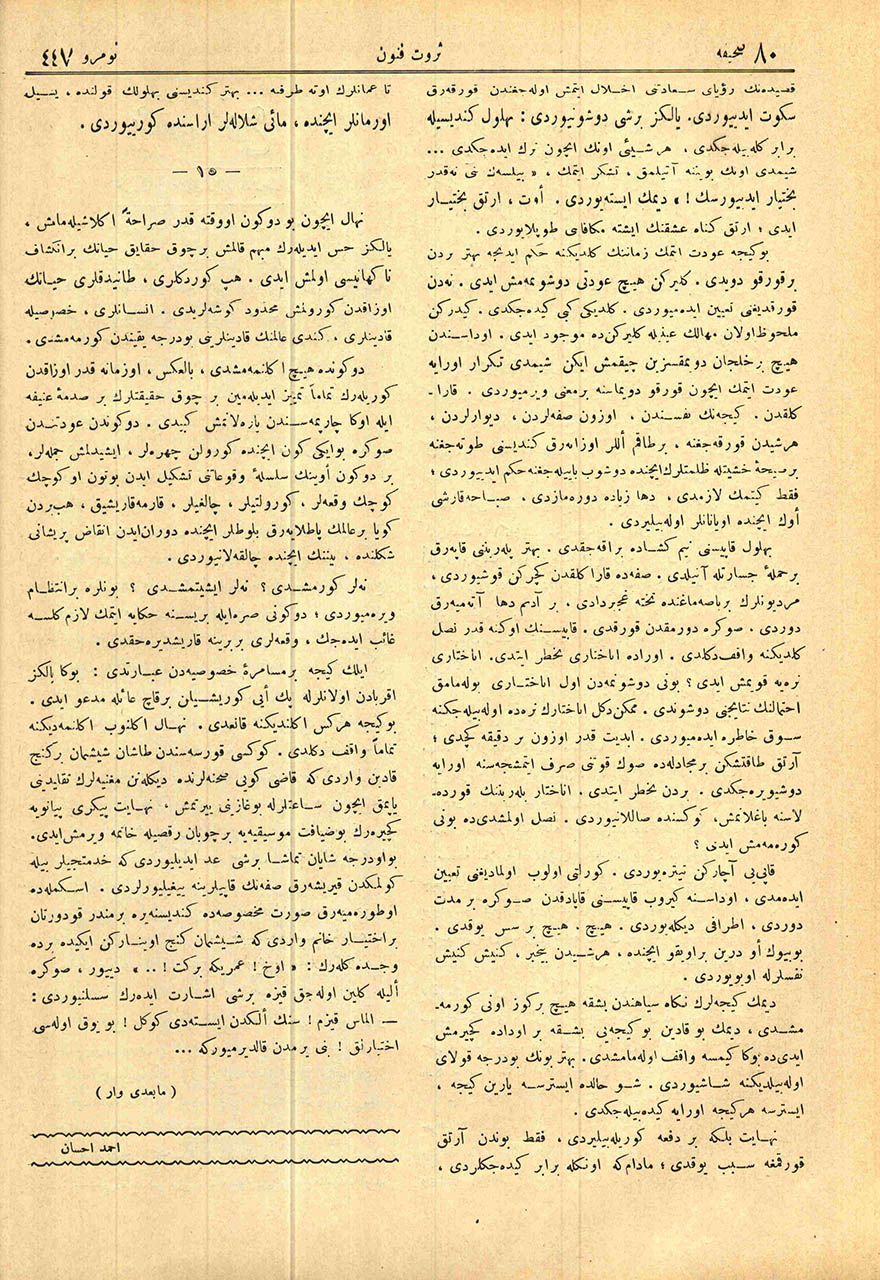 صحیفه ٨٠
ثروت فنون
نومرو ٤٤٧
قصیده‌نك رؤیای سعادتی اخلال ایتمش اوله‌جغندن قورقه‌رق
سکوت ایدییوردی. یالکز برشی دوشونیوردی : بهلول کندیسیله
برابر کله‌بیله‌جکدی ، هرشیئی اونك ایچون ترك ایده‌جکدی ...
شیمدی اونك بویننه آتیلمق ، تشکر ایتمك ، « بیلسه‌ك بنی نه‌قدر
بختیار ایدییورسك ! » دیمك ایسته‌یوردی . أوت ، ارتق بختیار
ایدی ؛ ارتق کناه عشقنك ایشته مکافاتی طوپلایوردی .
بوکیجه عودت ایتمك زماننك کلدیکنه حکم ایدنجه بهتر بردن
برقورقو دویدی . کلیرکن هیچ عودتی دوشونمه‌مش ایدی . نه‌دن
قورقدیغنی تعیین ایده‌میوردی . کلدیکی کبی کیده‌جکدی . کیدرکن
ملحوظ اولان مهالك عینیله کلیرکن‌ده موجود ایدی . اوداسندن
هیچ برخلجان دویمقسزین چیقمش ایکن شیمدی تکرار اورایه
عودت ایتمك ایچون قورقو دویماسنه برمعنی ویرمیوردی . قارا-
کلقدن . کیجه‌نك نفسندن ، اوزون صفه‌لردن ، دیوارلردن ،
هرشیدن قورقه‌جغنه ، برطاقم أللر اوزانه‌رق کندیسنی طوته‌جغنه
برصیحهٔ خشیتله ظلمتلرك‌ایچنده دوشوب بایبله‌جغنه حکم ایدییوردی ؛
فقط کیتمك لازمدی ، دها زیاده دوره‌مازدی . صباحه‌قارشی
أوك ایچنده اویانانلر اوله‌بیلیردی .
بهلول قاپیسنی نیم کشاده براقه‌جقدی . بهتر پله‌رینی قاپه‌رق
برحملهٔ جسارتله آتیلدی . صفه‌ده قاراکلقدن کچرکن قوشیوردی ،
مردیونلرك برباصه‌ماغنده تخته غجیردادی ، بر آدیم دها آته‌میه‌رق
دوردی . صوکره دورمقدن قورقدی . قاپیسنك اوکنه قدر نصل
کلدیکنه واقف‌دکلدی . اوراده اناختاری تخطر ایتدی. اناختاری
نره‌یه قویمش ایدی ؟ بونی دوشونمه‌دن اول اناختاری بوله‌مامق
احتمالنك نتایجنی دوشوندی . ممکن‌دکل اناختارك نره‌ده اوله‌بیله‌جکنه
سوق خاطره ایده‌میوردی . ابدیت قدر اوزون بر دقیقه کچدی ؛
آرتق طاقتشکن برمجادله‌ده صوك قوتنی صرف ایتمشجه‌سنه اورایه
دوشیویره‌جکدی . بردن تخطر ایتدی . اناختار پله‌رینك قورده-
لاسنه باغلانمش، کوکسنده صاللانیوردی . نصل اولمشدی‌ده بونی
کوره‌مه‌مش ایدی ؟
قاپی‌یی آچارکن تیتره‌یوردی . کورلتی اولوب اولمادیغنی تعیین
ایده‌مدی ، اوداسنه کیروب قاپیسنی قاپادقدن صوکره برمدت
دوردی ، اطرافی دیکله‌یوردی . هیچ . هیچ بر سس یوقدی .
بویوك أو درین براویقو ایچنده ، هرشیدن بیخبر ، کنیش کنیش
نفسلرله اویویوردی .
دیمك کیجه‌لرك نکاه سیاهندن بشقه هیچ برکوز اونی کورمه-
مشدی ، دیمك بو قادین بوکیجه‌یی بشقه بر اوداده کچیرمش
ایدی‌ده بوکا کیمسه واقف اوله‌مامشدی . بهتر بونك بودرجه قولای
اوله‌بیلدیکنه شاشیوردی . شو حالده ایسترسه یارین کیجه ،
ایسترسه هرکیجه اورایه کیده‌بیله‌جکدی .
نهایت بلکه بر دفعه کوریله‌بیلیردی ، فقط بوندن آرتق
قورقمغه سبب یوقدی ؛ مادام‌که اونکله برابر کیده‌جکلردی ،
تا عمانلرك اوته طرفنه ... بهتر کندیسنی بهلولك قولنده ، یشیل
اورمانلر ایچنده ، مائی شلاله‌لر اراسنده کورییوردی .
— ١٥ —
نهال ایچون بو دوکون اووقته قدر صراحةً اکلاشیله‌مامش ،
یالکز حس ایدیله‌رك مبهم قالمش برچوق حقایق حیاتك برانکشاف
ناکهانیسی اولمش ایدی . هپ کوردکلری ، طانیدقلری حیاتك
اوزاقدن کورولمش محدود کوشه‌لریدی . انسانلری ، خصوصیله
قادینلری ، کندی عالمنك قادینلرینی بودرجه یقیندن کورمه‌مشدی .
دوکونده هیچ اکلنمه‌مشدی ، بالعکس ، اوزمانه قدر اوزاقدن
کوریله‌رك تماماً تمیز ایدیله‌مین بر چوق حقیقتلرك بر صدمهٔ عنیفه
ایله اوکا چارپمه‌سندن یاره‌لانمش کبیدی . دوکوندن عودتندن
صوکره بوایکی کون ایچنده کورولن چهره‌لر ، ایشیدلمش جمله‌لر،
بر دوکون أوینك سلسلهٔ وقوعاتنی تشکیل ایدن بوتون او کوچك
کوچك وقعه‌لر ، کورولتیلر ، چالغیلر ، قارمه‌قاریشیق ، هپ‌بردن
کویا برعالمك پاطلایه‌رق بلوطلر ایچنده دوران‌ایدن انقاض پریشانی
شکلنده ، بیننك ایچنده چالقه‌لانیوردی .
نه‌لر کورمشدی ؟ نه‌لر ایشیتمشدی ؟ بونلره برانتظام
ویره‌میوردی ؛ دوکونی صره‌ایله بریسنه حکایه ایتمك لازم‌کلسه
غائب ایده‌جك ، وقعه‌لری بربرینه قاریشدیره‌جقدی .
ایلك کیجه برمسامرهٔ خصوصیه‌دن عبارتدی : بوکا یالکز
اقربادن اولانلرله پك أیی کوریشیلن برقاچ عائله مدعو ایدی .
بوکیجه هرکس اکلندیکنه قانعدی . نهال اکلنوب اکلنمه‌دیکنه
تماماً واقف دکلدی . کوکسی قورسه‌سندن طاشان شیشمان برکنج
قادین واردی‌که قاضی کویی صحنه‌لرنده دیکله‌نن مغنیه‌لرك تقلیدینی
یاپمق ایچون ساعتلرله بوغازینی ییرتمش ، نهایت پیکری پیانویه
کچیره‌رك بوضیافت موسیقیه‌یه برچوبان رقصیله خاتمه ویرمش‌ایدی.
بواودرجه شایان تماشا برشی عد ایدیلیوردی‌که خدمتجیلر بیله
کولمکدن قیریشه‌رق صفه‌نك قاپیلرینه ییغیلیورلردی . اسکمله‌ده
اوطوره‌میه‌رق صورت مخصوصه‌ده کندیسنه‌یره برمندر قودورتان
براختیار خانم واردی‌که شیشمان کنج اوینارکن ایکیده برده
وجده کله‌رك : « اوخ ! عمریکه برکت ! .. » دییور ، صوکره
ألیله کلین اوله‌جق قیزه برشی اشارت ایده‌رك سسلنیوردی :
— الماس قیزم ! سنك ألکدن ایسته‌دی کوکل ! بو یوق اوله‌سی
اختیارلق ! بنی یرمدن قالدیرمیورکه ...
( مابعدی وار )
احمد احسان